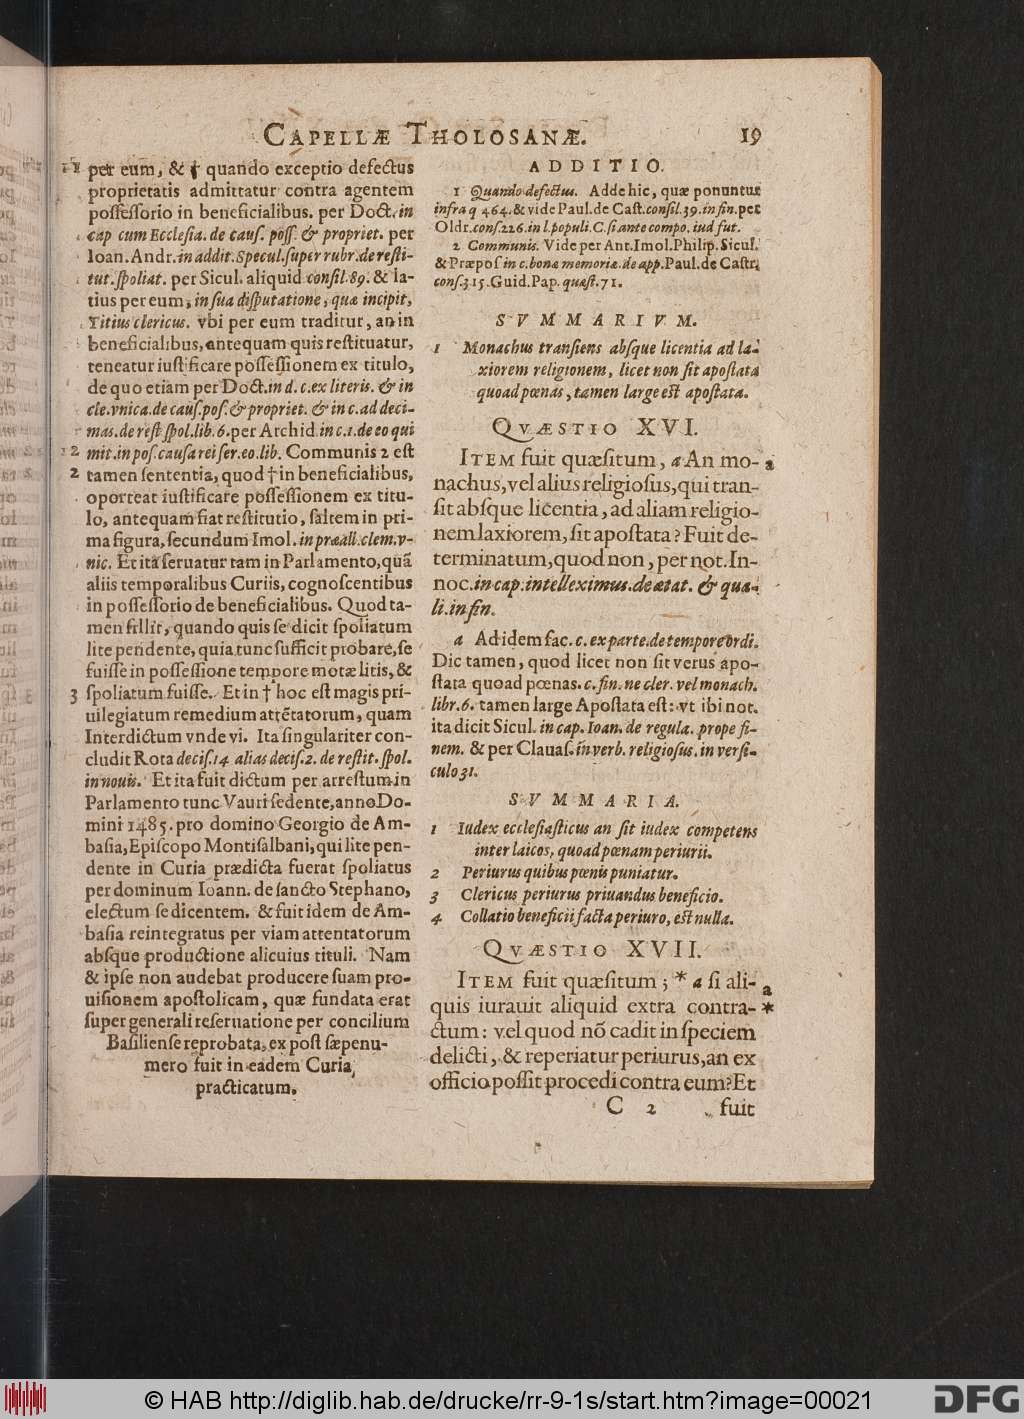 CAPELLÆ THOLOSANÆ. 19
1 per eum, & † quando exceptio defectus
proprietatis admittatur contra agentem
poſſeſſorio in beneficialibus. per Doct. in
cap cum Eccleſia. de cauſ. poſſ. & propriet. per
Ioan. Andr. in addit. Specul. ſuper rubr. de reſti-
tut. ſpoliat. per Sicul. aliquid conſil. 89. & la-
tius per eum, in ſua diſputatione, quæ incipit,
Titius clericus. vbi per eum traditur, an in
beneficialibus, antequam quis reſtituatur,
teneatur iuſtificare poſſeſſionem ex titulo,
de quo etiam per Doct. in d. c. ex literis. & in
cle. vnica. de cauſ. poſ. & propriet. & in c. ad deci-
mas. de reſt ſpol. lib. 6. per Archid. in c. 1. de eo qui
2 mit. in poſ. cauſa rei ſer. eo. lib. Communis 2 eſt
2 tamen ſententia, quod † in beneficialibus,
oporteat iuſtificare poſſeſſionem ex titu-
lo, antequam fiat reſtitutio, ſaltem in pri-
ma figura, ſecundum Imol. in præall. clem. v-
nic. Et ita ſeruatur tam in Parlamento, quã
aliis temporalibus Curiis, cognoſcentibus
in poſſeſſorio de beneficialibus. Quod ta-
men fillit, quando quis ſe dicit ſpoliatum
lite pendente, quia tunc ſufficit probare, ſe
fuiſſe in poſſeſſione tempore motæ litis, &
3 ſpoliatum fuiſſe. Et in † hoc eſt magis pri-
uilegiatum remedium attẽtatorum, quam
Interdictum vnde vi. Ita ſingulariter con-
cludit Rota deciſ. 14 alias deciſ. 2. de reſtit. ſpol.
in nouis. Et ita fuit dictum per arreſtum in
Parlamento tunc Vauri ſedente, anno Do-
mini 1485. pro domino Georgio de Am-
baſia, Epiſcopo Montiſalbani, qui lite pen-
dente in Curia prædicta fuerat ſpoliatus
per dominum Ioann. de ſancto Stephano,
electum ſe dicentem. & fuit idem de Am-
baſia reintegratus per viam attentatorum
abſque productione alicuius tituli. Nam
& ipſe non audebat producere ſuam pro-
uiſionem apoſtolicam, quæ fundata erat
ſuper generali reſeruatione per concilium
Baſilienſe reprobata, ex poſt ſæpenu-
mero fuit in eadem Curia
practicatum.
ADDITIO.
1 Quando defectus. Adde hic, quæ ponuntur
infra q 464. & vide Paul. de Caſt. conſil. 39. in fin. per
Oldr. conſ. 226. in l. populi. C. ſi ante compo. iud fut.
2 Communis. Vide per Ant. Imol. Philip. Sicul.
& Præpoſ in c. bonæ memoriæ. de app. Paul. de Caſtr.
conſ. 315. Guid. Pap. quæſt. 71.
SVMMARIVM.
1 Monachus tranſiens abſque licentia ad la-
xiorem religionem, licet non ſit apoſtata
quoad pœnas, tamen large eſt apoſtata.
QVÆSTIO XVI.
ITEM fuit quæſitum, a An mo- a
nachus, vel alius religioſus, qui tran-
ſit abſque licentia, ad aliam religio-
nem laxiorem, ſit apoſtata? Fuit de-
terminatum, quod non, per not. In-
noc. in cap. intelleximus. de ætat. & qua-
li. in fin.
a Ad idem fac. c. ex parte. de tempore ordi.
Dic tamen, quod licet non ſit verus apo-
ſtata quoad pœnas. c. fin. ne cler. vel monach.
libr. 6. tamen large Apoſtata eſt: vt ibi not.
ita dicit Sicul. in cap. Ioan. de regula. prope fi-
nem. & per Clauaſ. in verb. religioſus. in verſi-
culo 31.
SVMMARIA.
1 Iudex eccleſiaſticus an ſit iudex competens
inter laicos, quoad pœnam periurii.
2 Periurus quibus pœnis puniatur.
3 Clericus periurus priuandus beneficio.
4 Collatio beneficii facta periuro, eſt nulla.
QVÆSTIO XVII.
ITEM fuit quæſitum; * a ſi ali- a
quis iurauit aliquid extra contra- *
ctum: vel quod nõ cadit in ſpeciem
delicti, & reperiatur periurus, an ex
officio poſſit procedi contra eum? Et
C 2 fuit
© HAB http://diglib.hab.de/drucke/rr-9-1s/start.htm?image=00021
DFG